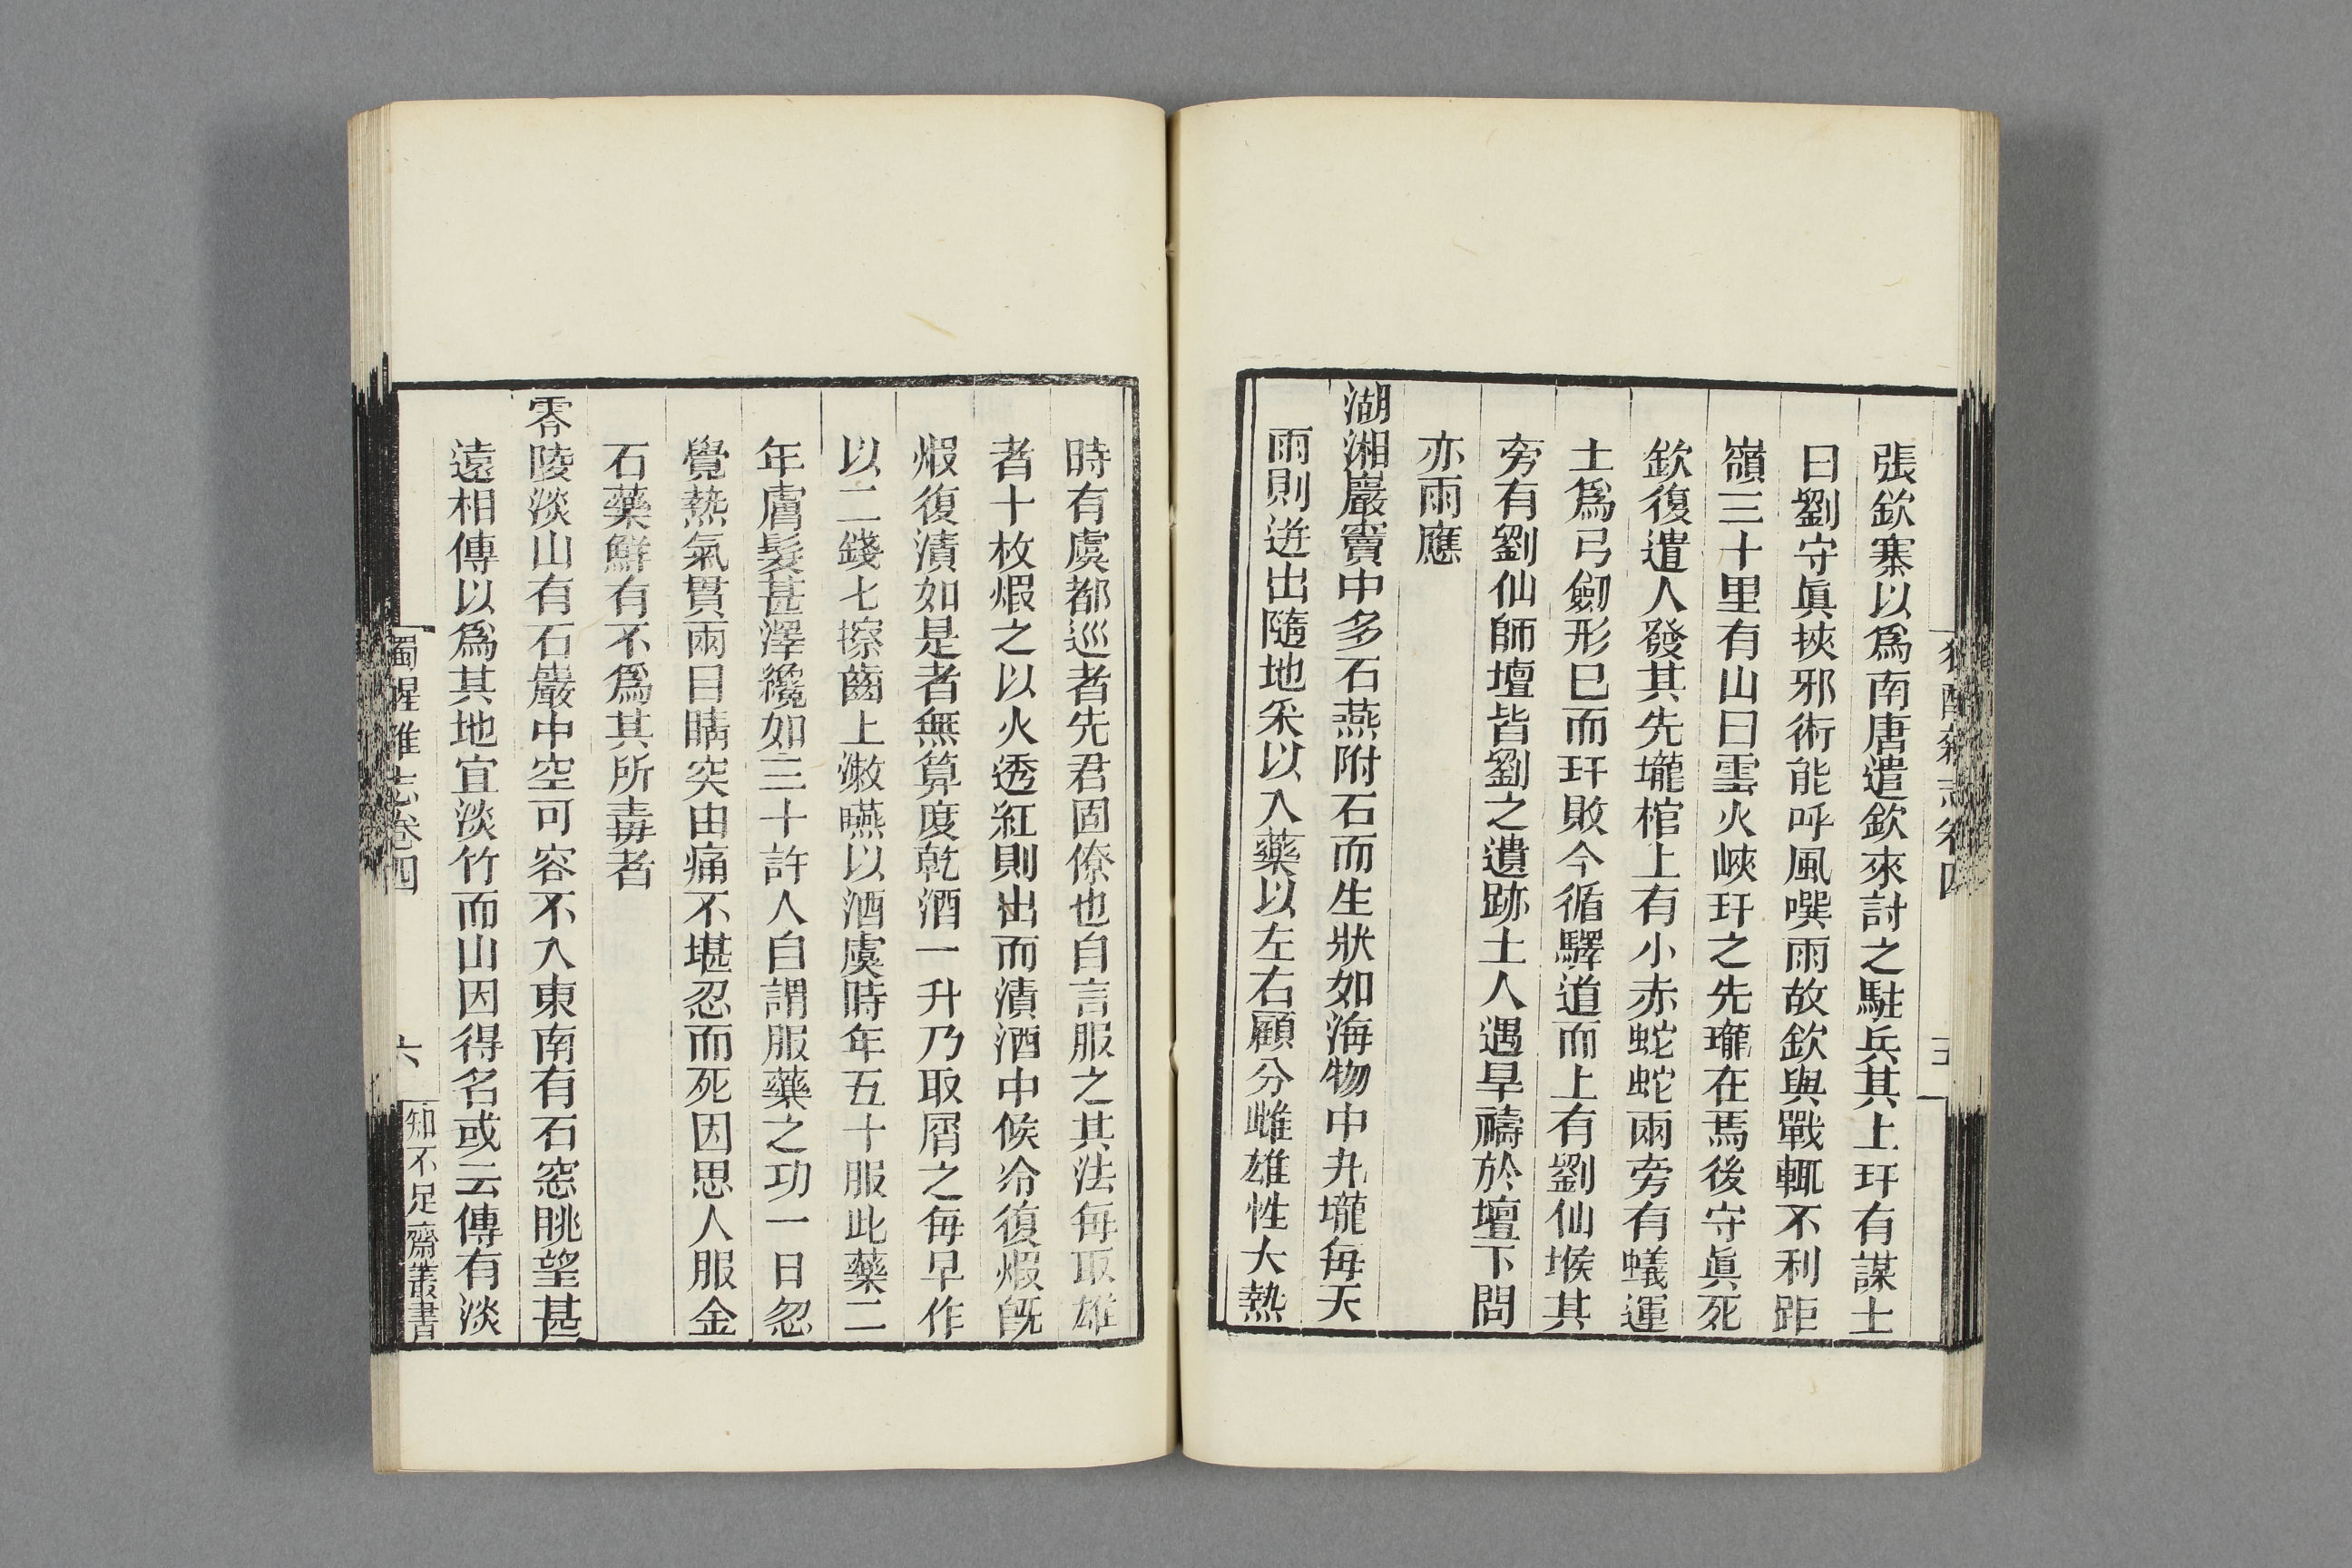 張欽寨以爲南唐遣欽來討之駐兵其上玕有謀士
曰劉守眞挾邪術能呼風噀雨故欽與戰輒不利距
嶺三十里有山曰雲火峽玕之先壠在焉後守眞死
欽復遣人發其先壠棺上有小赤蛇蛇兩旁有蟻運
土爲弓劒形巳而玕敗今循驛道而上有劉仙堠其
旁有劉仙師壇皆劉之遺跡土人遇旱禱於壇下問
亦雨應
湖湘巖竇中多石燕附石而生狀如海物中丹壠每天
雨則迸出隨地采以入藥以左右顧分雌雄性大熱
時有虞都巡者先君固僚也自言服之其法每取雄
者十枚煆之以火透紅則出而漬酒中候冷復煆旣
煆復漬如是者無算度乾酒一升乃取屑之每早作
以二錢七擦齒上漱嚥以酒虞時年五十服此藥二
年膚髮甚澤纔如三十許人自謂服藥之功一日忽
覺熱氣貫兩目睛突出痛不堪忍而死因思人服金
石藥鮮有不爲其所毒者
零陵淡山有石巖中空可容不入東南有石窓眺望甚
遠相傳以爲其地宜淡竹而山因得名或云傳有淡
獨醒雜志卷四
六
知不足齋叢書